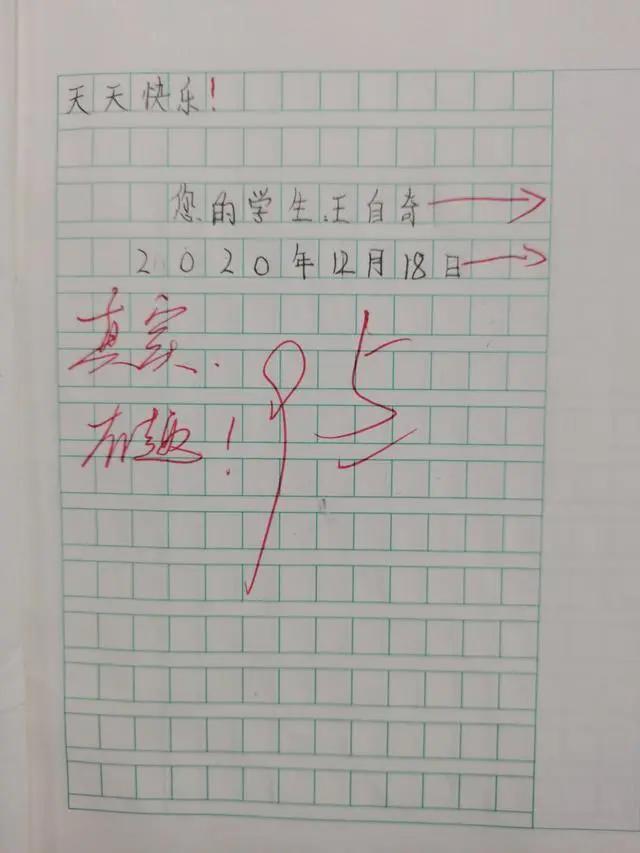 天天快乐！
您的学生：王自奇
2020年12月18日
真实、
有趣！
95